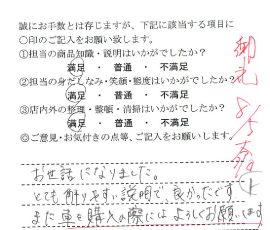 誠にお手数とは存じますが、下記に該当する項目に
○印のご記入をお願い致します。
①担当の商品知識・説明はいかがでしたか？
満足 ・ 普通 ・ 不満足
②担当の身だしなみ・笑顔・態度はいかがでしたか？
満足 ・ 普通 ・ 不満足
③店内外の整理・整頓・清掃はいかがでしたか？
満足 ・ 普通 ・ 不満足
◎ご意見・お気付きの点等、ご記入をお願いします。
お世話になりました。
とても解りやすい説明で、良かったです
また車を購入の際にはよろしくお願います
御礼 8/5